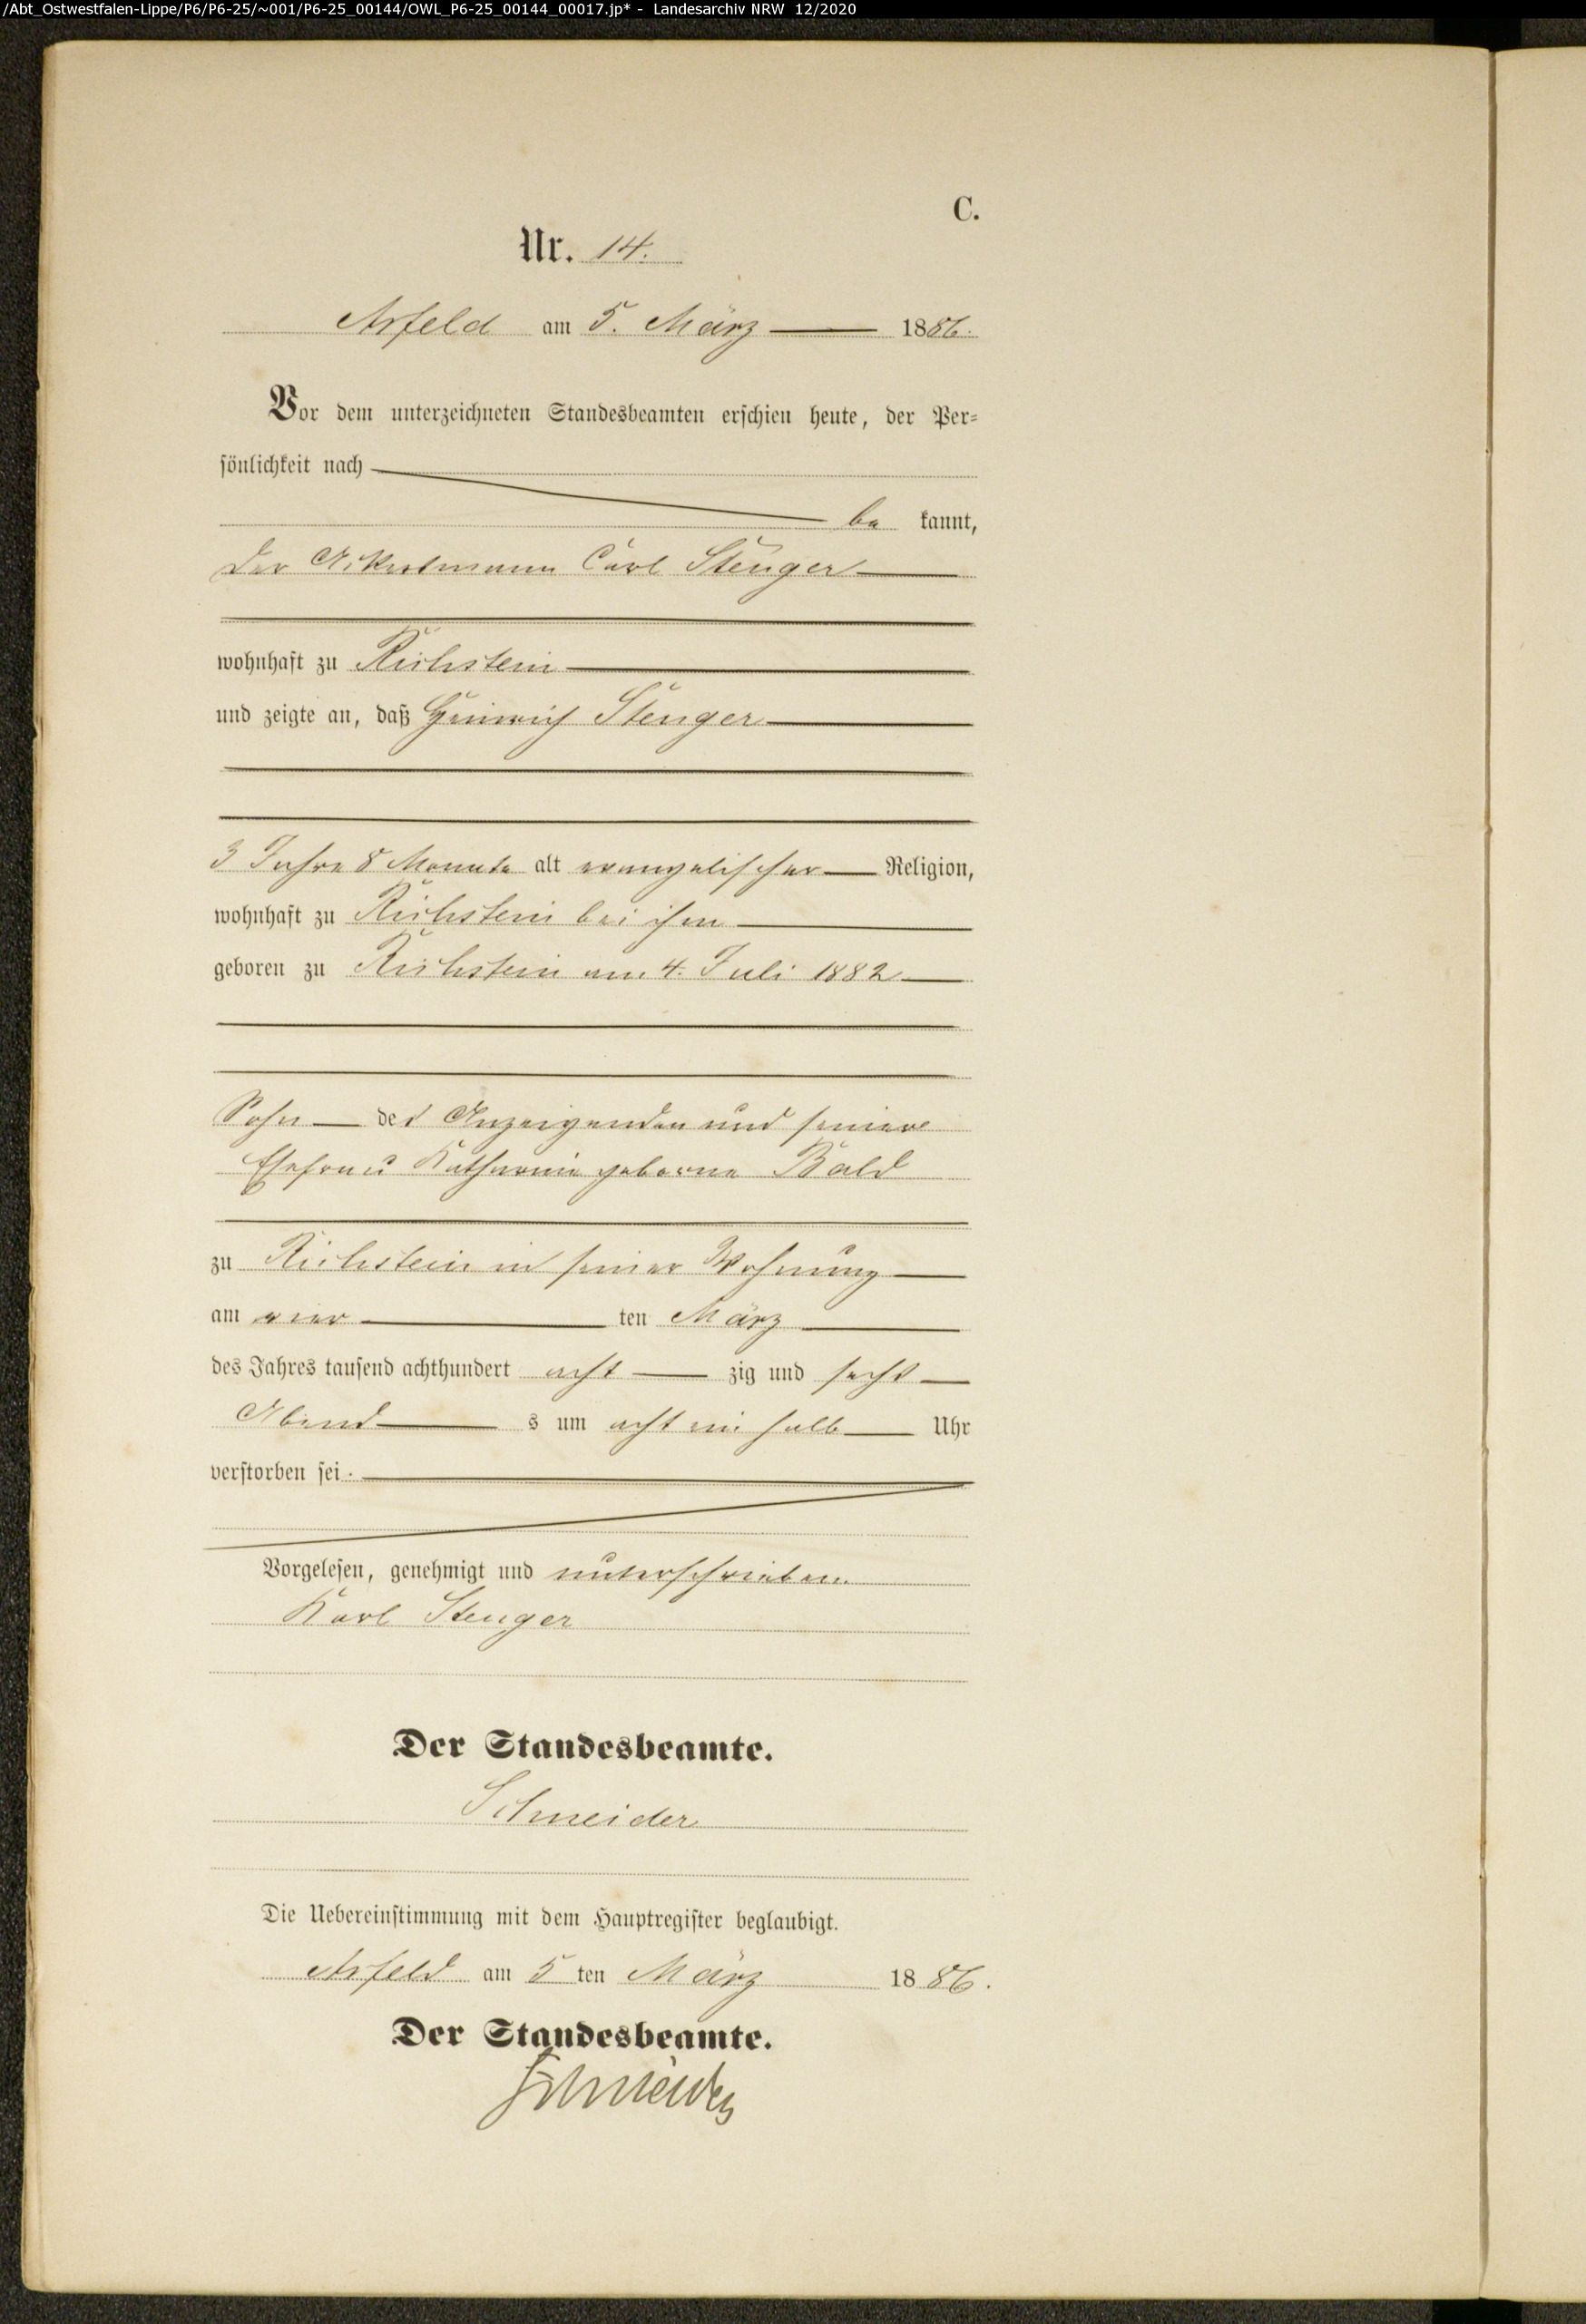 /Abt_Ostwestfalen-Lippe/P6/P6-25/~001/P6-25_00144/OWL_P6-25_00144_00017.jp* - Landesarchiv NRW 12/2020
C.
Nr. 14.
Arfeld am 5. März 1886.
Vor dem unterzeichneten Standesbeamten erschien heute, der Per-
sönlichkeit nach
be kannt,
der Ackersmann Carl Stenger
wohnhaft zu Richstein
und zeigte an, daß Heinrich Stenger
3 Jahre 8 Monate alt evangelischer Religion,
wohnhaft zu Richstein bei ihm
geboren zu Richstein am 4. Juli 1882
Sohn des Anzeigenden und seiner
Ehefrau Katharine geborne Bald
zu Richstein in seiner Wohnung
am vier ten März
des Jahres tausend achthundert acht zig und sechs
Abend s um acht ein halb Uhr
verstorben sei.
Vorgelesen, genehmigt und unterschrieben.
Karl Stenger
Der Standesbeamte.
Schneider
Die Uebereinstimmung mit dem Hauptregister beglaubigt.
Arfeld am 5 ten März 1886.
Der Standesbeamte.
Schneider